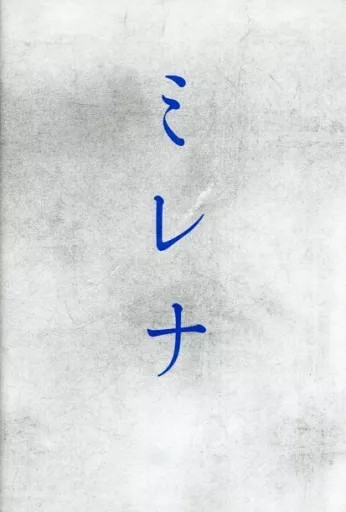 ミレナ